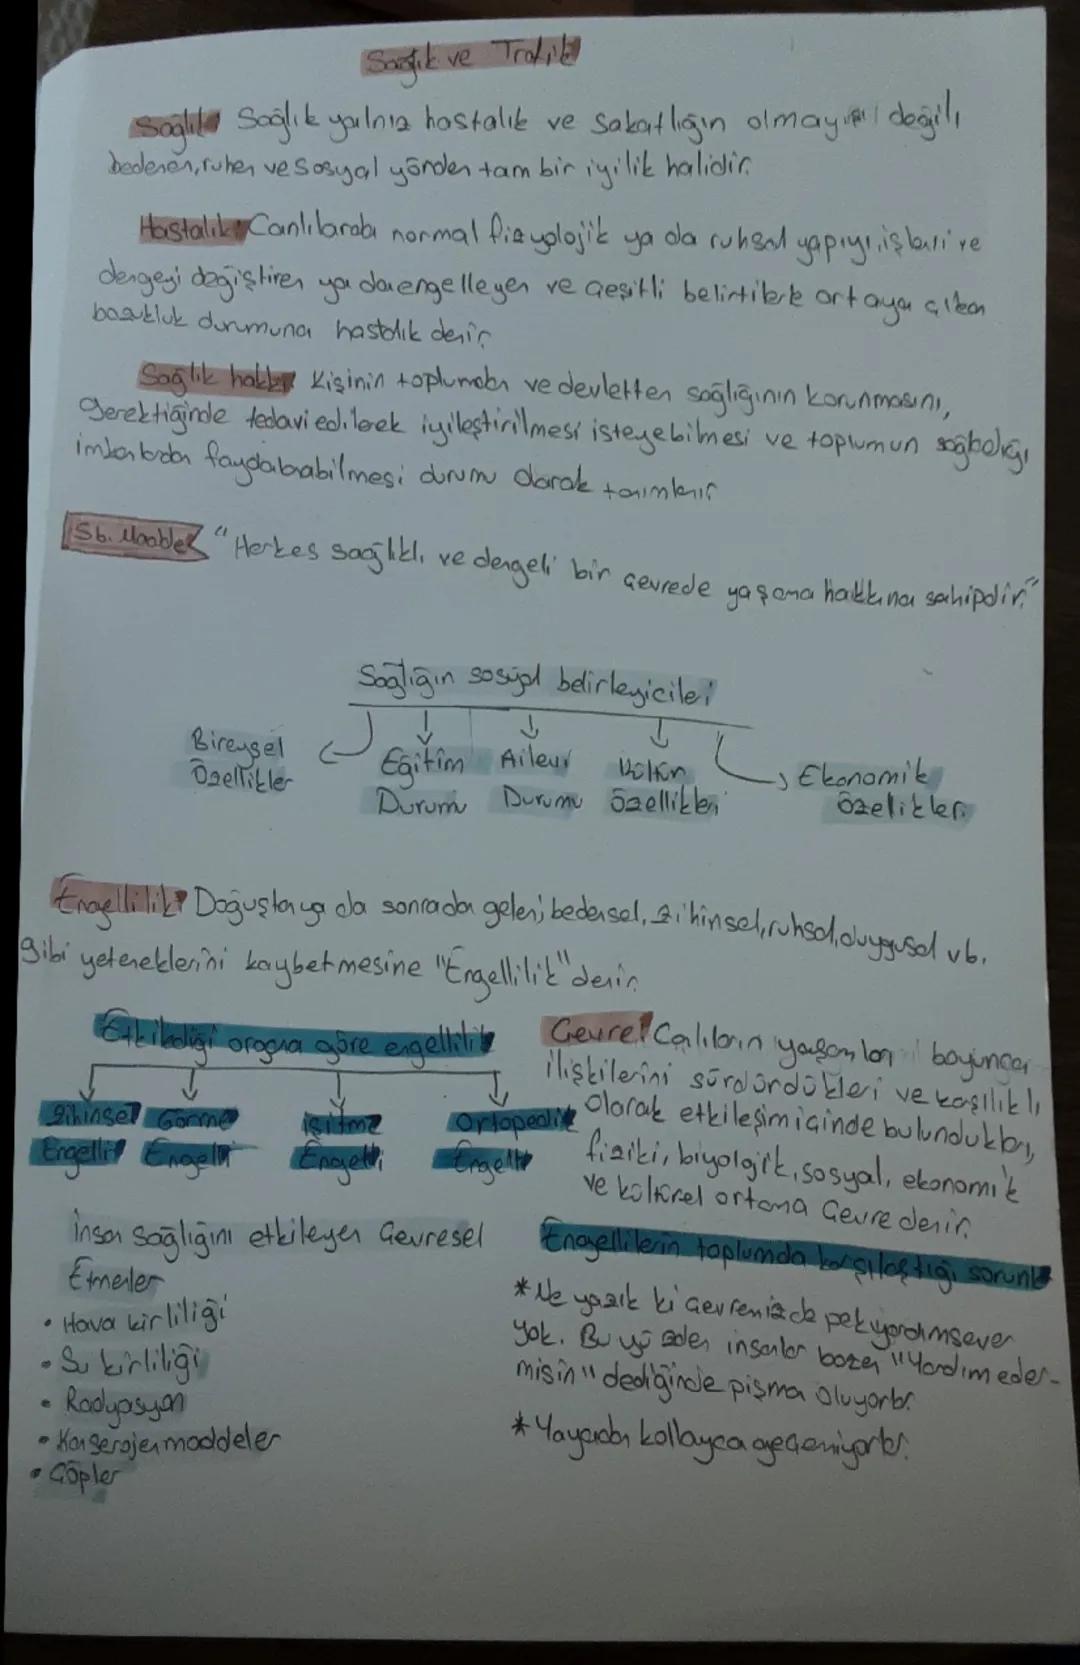 Sağlık ve Trafik
Sağlık: Sağlık yalnız hastalık ve sakatlığın olmayışı değil,
bedenen, ruhen ve sosyal yönden tam bir iyilik halidir.
Hastalık: Canlılarda normal fizyolojik ya da ruhsal yapıyı, işlevi ve
dengeyi değiştiren ya da engelleyen ve çeşitli belirtilerle ortaya çıkan
bozukluk durumuna hastalık denir.
Sağlık hakkı: Kişinin toplumdan ve devletten sağlığının korunmasını,
gerektiğinde tedavi edilerek iyileştirilmesi isteyebilmesi ve toplumun sağladığı
imkanlardan faydalanabilmesi durumu olarak tanımlanır
56. Madde: "Herkes sağlıklı ve dengeli bir çevrede yaşama hakkına sahipdir."
Sağlığın sosyal belirleyicileri
Bireysel Özellikler
Eğitim Durumu
Ailevi Durumu
Kültür özellikleri
Ekonomik özelikler.
Engellilik: Doğuştan ya da sonradan gelen; bedensel, zihinsel, ruhsal, duygusal vb.
gibi yeteneklerini kaybetmesine "Engellilik" denir.
Etkilediği organa göre engellilik
Zihinsel Engelli
Görme Engelli
işitme Engelli
Ortopedik Engelli
Çevre: Calıların yaşamları boyunca
ilişkilerini sürdürdükleri ve kaşılıklı
olarak etkileşim içinde bulundukları,
fiziki, biyolojik, sosyal, ekonomik
ve kültürel ortama Çevre denir.
İnsan sağlığını etkileyen Çevresel
Etmenler
• Hava kirliliği
• Su kirliliği
• Radyasyon
• Kanserojen maddeler
• Çöpler
Engellilerin toplumda karşılaştığı sorunlar
* Ne yazık ki çevremizde pek yardımsever
yok. Bu yüzden insanlar bazen "Yardım eder-
misin" dediğinde pişman oluyorlar.
* Yayadan kollayca geçemiyorlar.